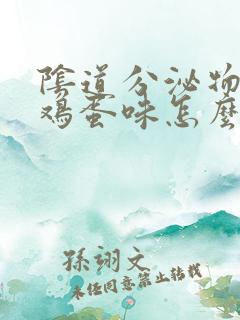 陰道分泌物
鸡蛋味怎麼
孫翊文
未经同意禁止转载